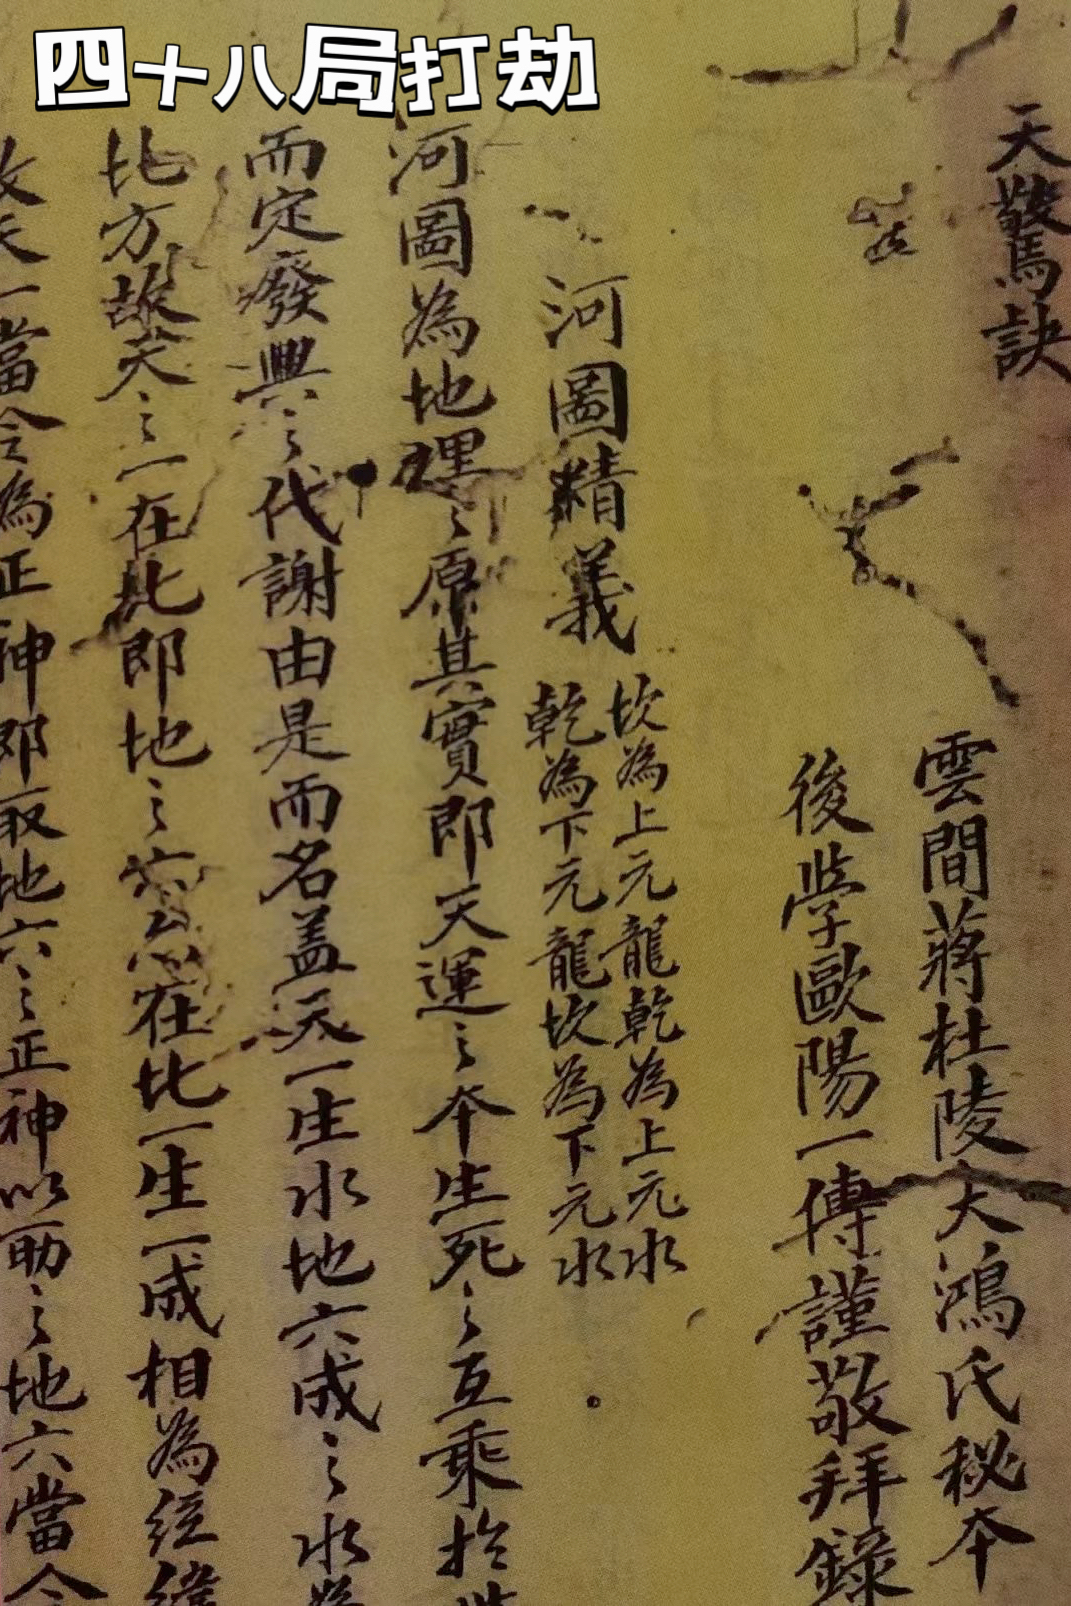 四十八局打劫
天驚訣
雲間蔣杜陵大鴻氏秘本
後學歐陽一傳謹敬拜錄
河圖精義
坎為上元龍乾為上元水
乾為下元龍坎為下元水
河圖為地理之原其實即天運之本生死之互乘於
而定廢興之代謝由是而名盖天一生水地六成之水為
北方故天之一在北即地之六亦在北一生一成相為經緯
故天一當令為正神即取地六之正神以助之地六當令